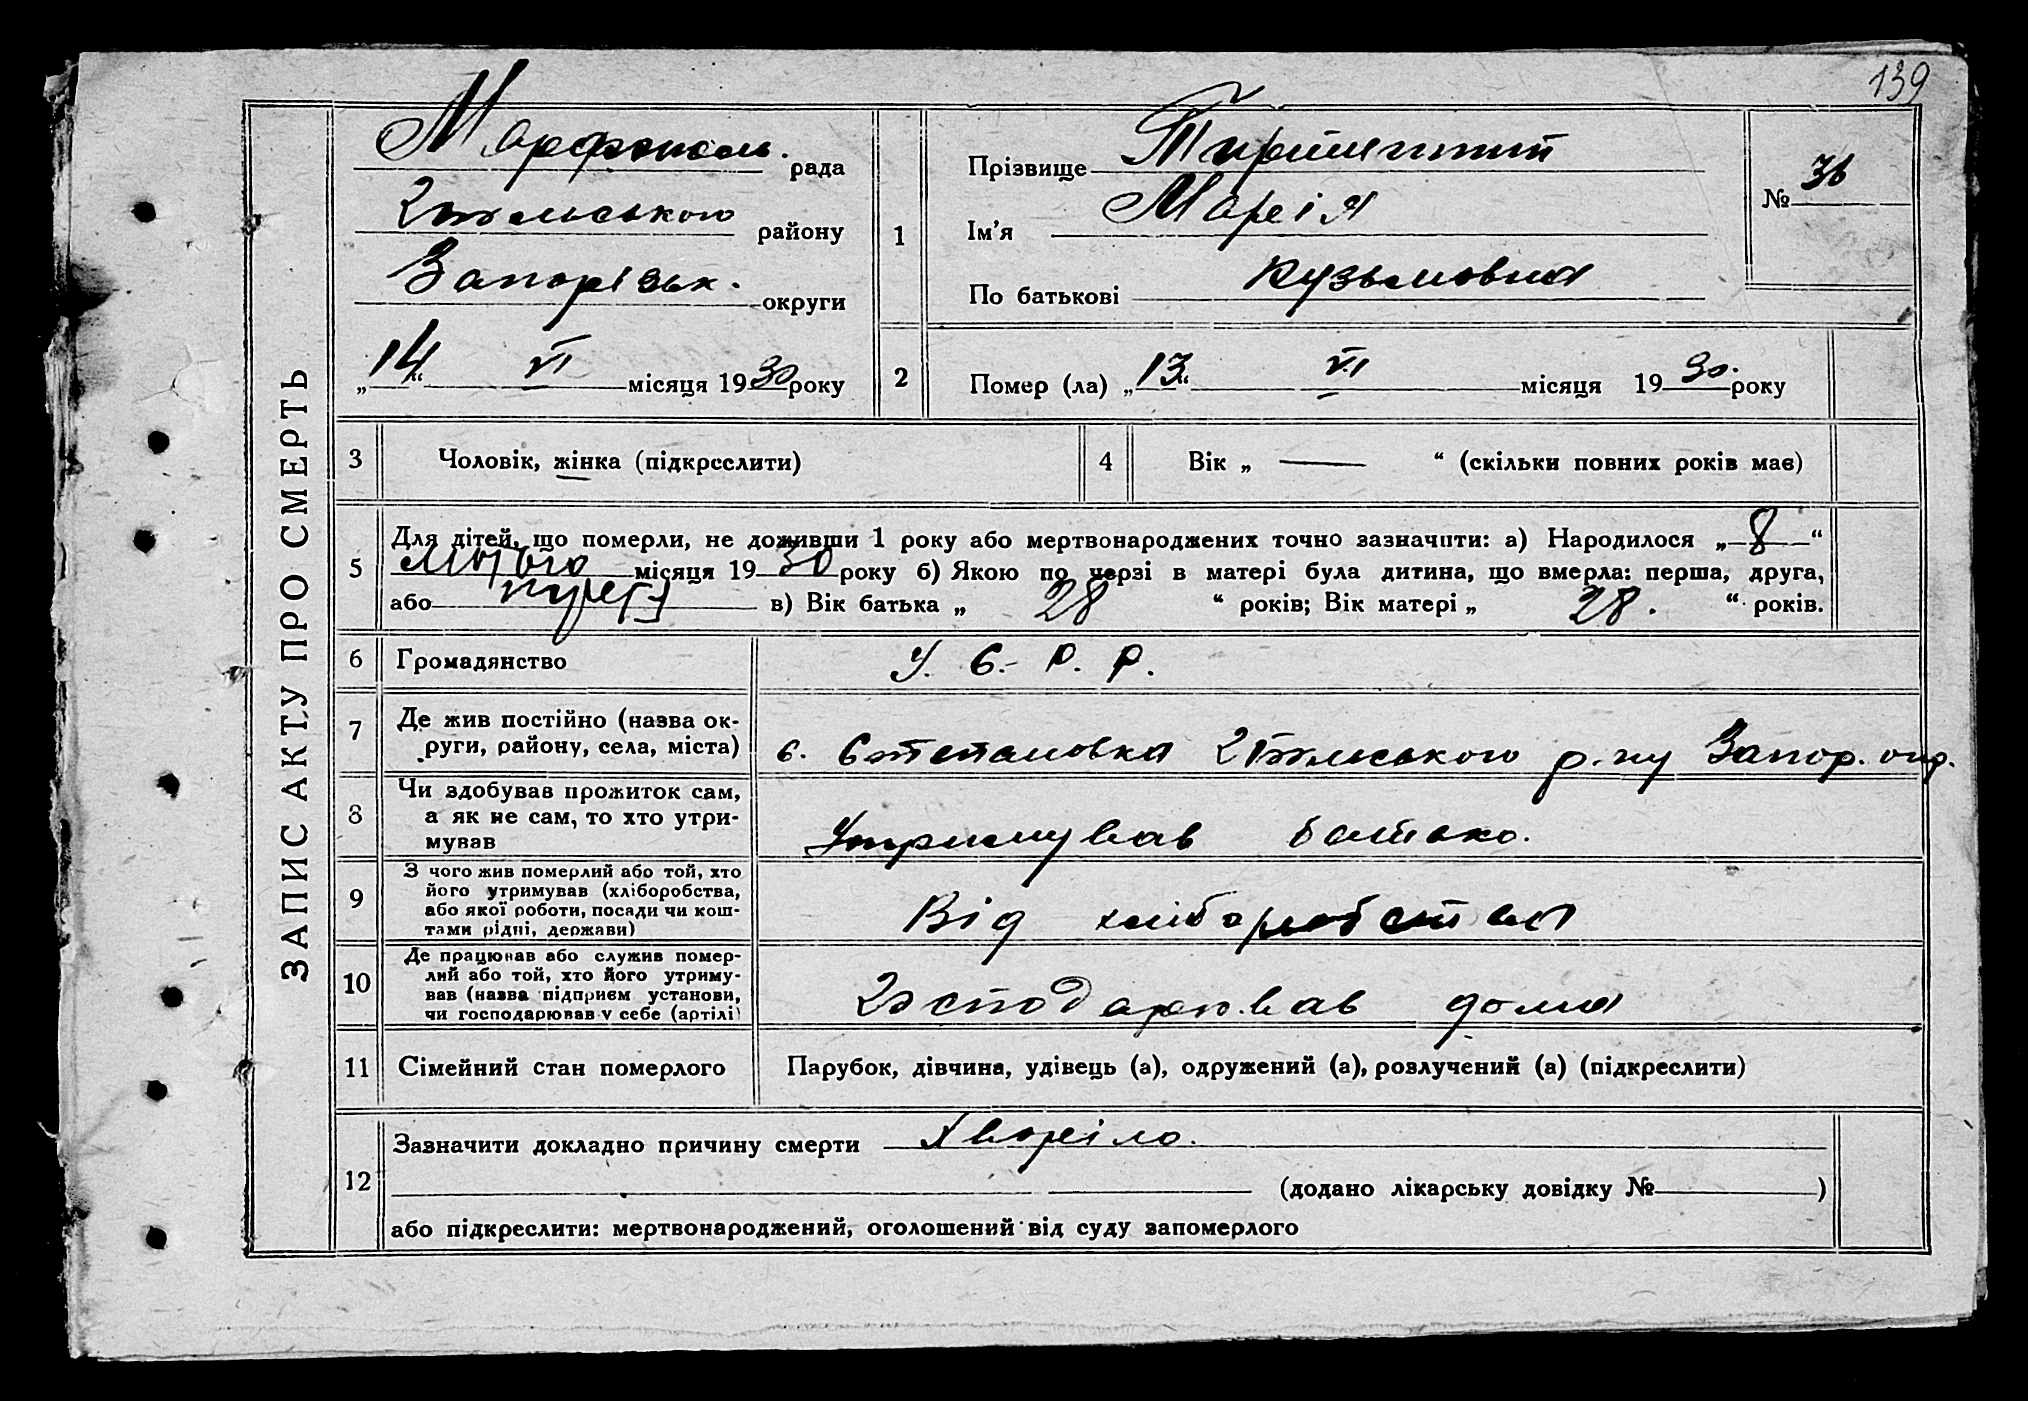 139
ЗАПИС АКТУ ПРО СМЕРТЬ
Марфопол. рада
району
Запорізьк. округи
„14“ VI місяця 1930 року
1
Прізвище
Ім'я Марія
По батькові Кузьмовна
№ 36
2 Помер (ла) „13“ VI місяця 1930. року
3 Чоловік, жінка (підкреслити)
4 Вік „ — “ (скільки повних років має)
5 Для дітей, що померли, не доживши 1 року або мертвонароджених точно зазначити: а) Народилося „8“
лютого місяця 1930 року б) Якою по черзі в матері була дитина, що вмерла: перша, друга,
або в) Вік батька „ 28 “ років; Вік матері „ 28. “ років.
6 Громадянство У. С. Р. Р.
7 Де жив постійно (назва округи, району, села, міста) с. Степановка р-ну Запор. окр.
8 Чи здобував прожиток сам,
а як не сам, то хто утри-
мував Утримував батько.
9 З чого жив померлий або той, хто
його утримував (хліборобства,
або якої роботи, посади чи кош-
тами рідні, держави) Від хліборобства
10 Де працював або служив помер-
лий або той, хто його утриму-
вав (назва підприєм установи,
чи господарював у себе (артілі) Господарював дома
11 Сімейний стан померлого Парубок, дівчина, удівець (а), одружений (а), розлучений (а) (підкреслити)
12 Зазначити докладно причину смерти Хворіла.
(додано лікарську довідку № )
або підкреслити: мертвонароджений, оголошений від суду запомерлого